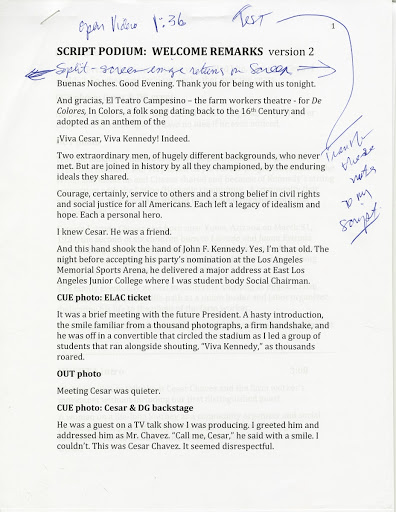 Open Video 1:36 Test
1
SCRIPT PODIUM: WELCOME REMARKS version 2
Split-screen image returns on Screen
Buenas Noches. Good Evening. Thank you for being with us tonight.
And gracias, El Teatro Campesino – the farm workers theatre - for De
Colores, In Colors, a folk song dating back to the 16th Century and
adopted as an anthem of the
¡Viva Cesar, Viva Kennedy! Indeed.
Two extraordinary men, of hugely different backgrounds, who never
met. But are joined in history by all they championed, by the enduring
ideals they shared.
Transfer
these
notes
to my
script
Courage, certainly, service to others and a strong belief in civil rights
and social justice for all Americans. Each left a legacy of idealism and
hope. Each a personal hero.
I knew Cesar. He was a friend.
And this hand shook the hand of John F. Kennedy. Yes, I'm that old. The
night before accepting his party's nomination at the Los Angeles
Memorial Sports Arena, he delivered a major address at East Los
Angeles Junior College where I was student body Social Chairman.
CUE photo: ELAC ticket
It was a brief meeting with the future President. A hasty introduction,
the smile familiar from a thousand photographs, a firm handshake, and
he was off in a convertible that circled the stadium as I led a group of
students that ran alongside shouting, "Viva Kennedy," as thousands
roared.
OUT photo
Meeting Cesar was quieter.
CUE photo: Cesar & DG backstage
He was a guest on a TV talk show I was producing. I greeted him and
addressed him as Mr. Chavez. "Call me, Cesar," he said with a smile. I
couldn't. This was Cesar Chavez. It seemed disrespectful.